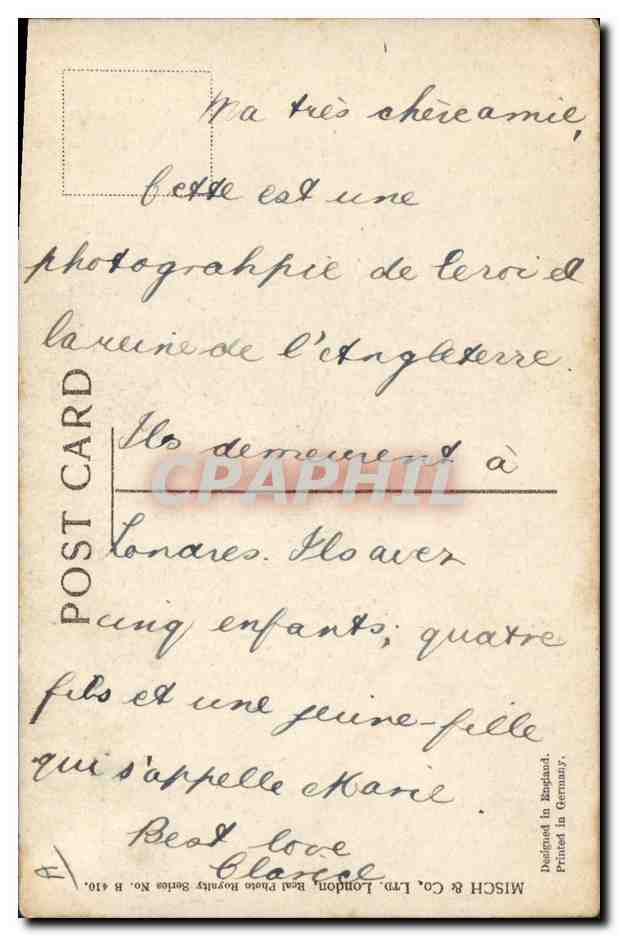 Ma très chère amie,
Cette est une
photograhpie de le roi et
la reine de l'Angleterre.
Ils demeurent à
CPAPHIL
Londres. Ils avez
cinq enfants; quatre
fils et une jeune-fille
qui s'appelle Marie.
Best love
Clarice
POST CARD
Designed in England.
Printed in Germany.
MISCH & Co., LTD. London, Real Photo Royalty Series No. B 410.